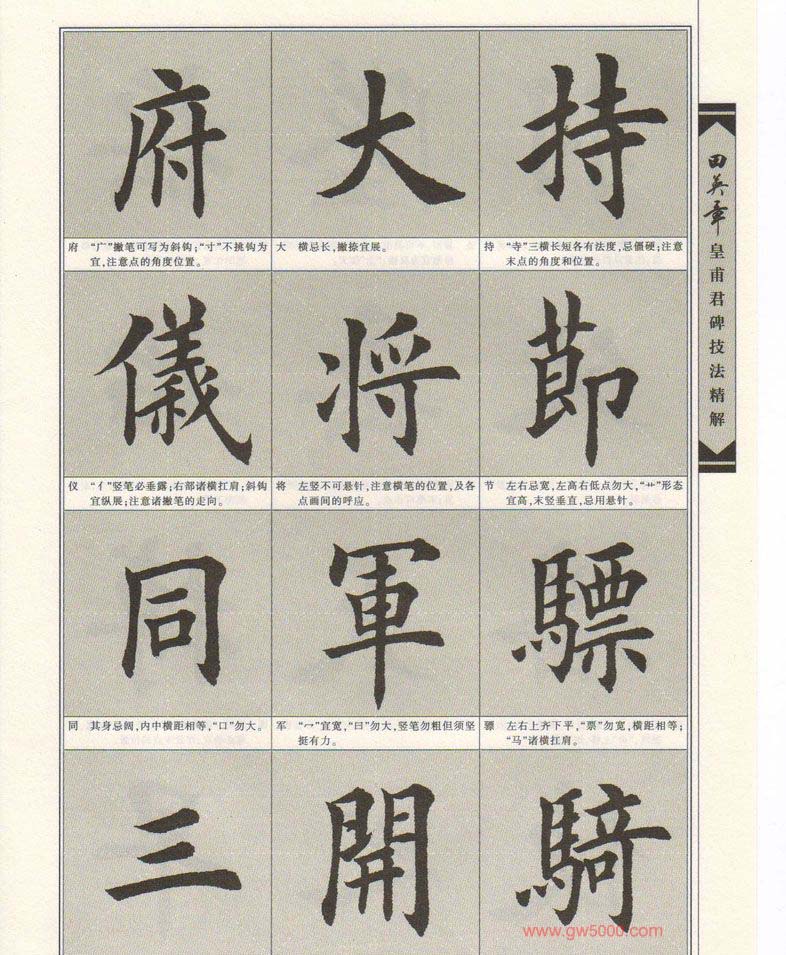 持
大
府
持 “寺”三横长短各有法度,忌僵硬;注意
末点的角度和位置。
大 横忌长,撇捺宜展。
府 “广”撇笔可写为斜钩;“寸”不挑钩为
宜,注意点的角度位置。
節
将
儀
节 左右忌宽,左高右低点勿大,“艹”形态
宜高,末竖垂直,忌用悬针。
将 左竖不可悬针,注意横笔的位置,及各
点画间的呼应。
仪 “亻”竖笔必垂露;右部诸横扛肩;斜钩
宜纵展;注意诸撇笔的走向。
驃
軍
同
骠 左右上齐下平,“票”勿宽,横距相等;
“马”诸横扛肩。
军 “冖”宜宽,“曰”勿大,竖笔勿粗但须坚
挺有力。
同 其身忌阔,内中横距相等,“口”勿大。
騎
開
三
田英章皇甫君碑技法精解
www.gw5000.com